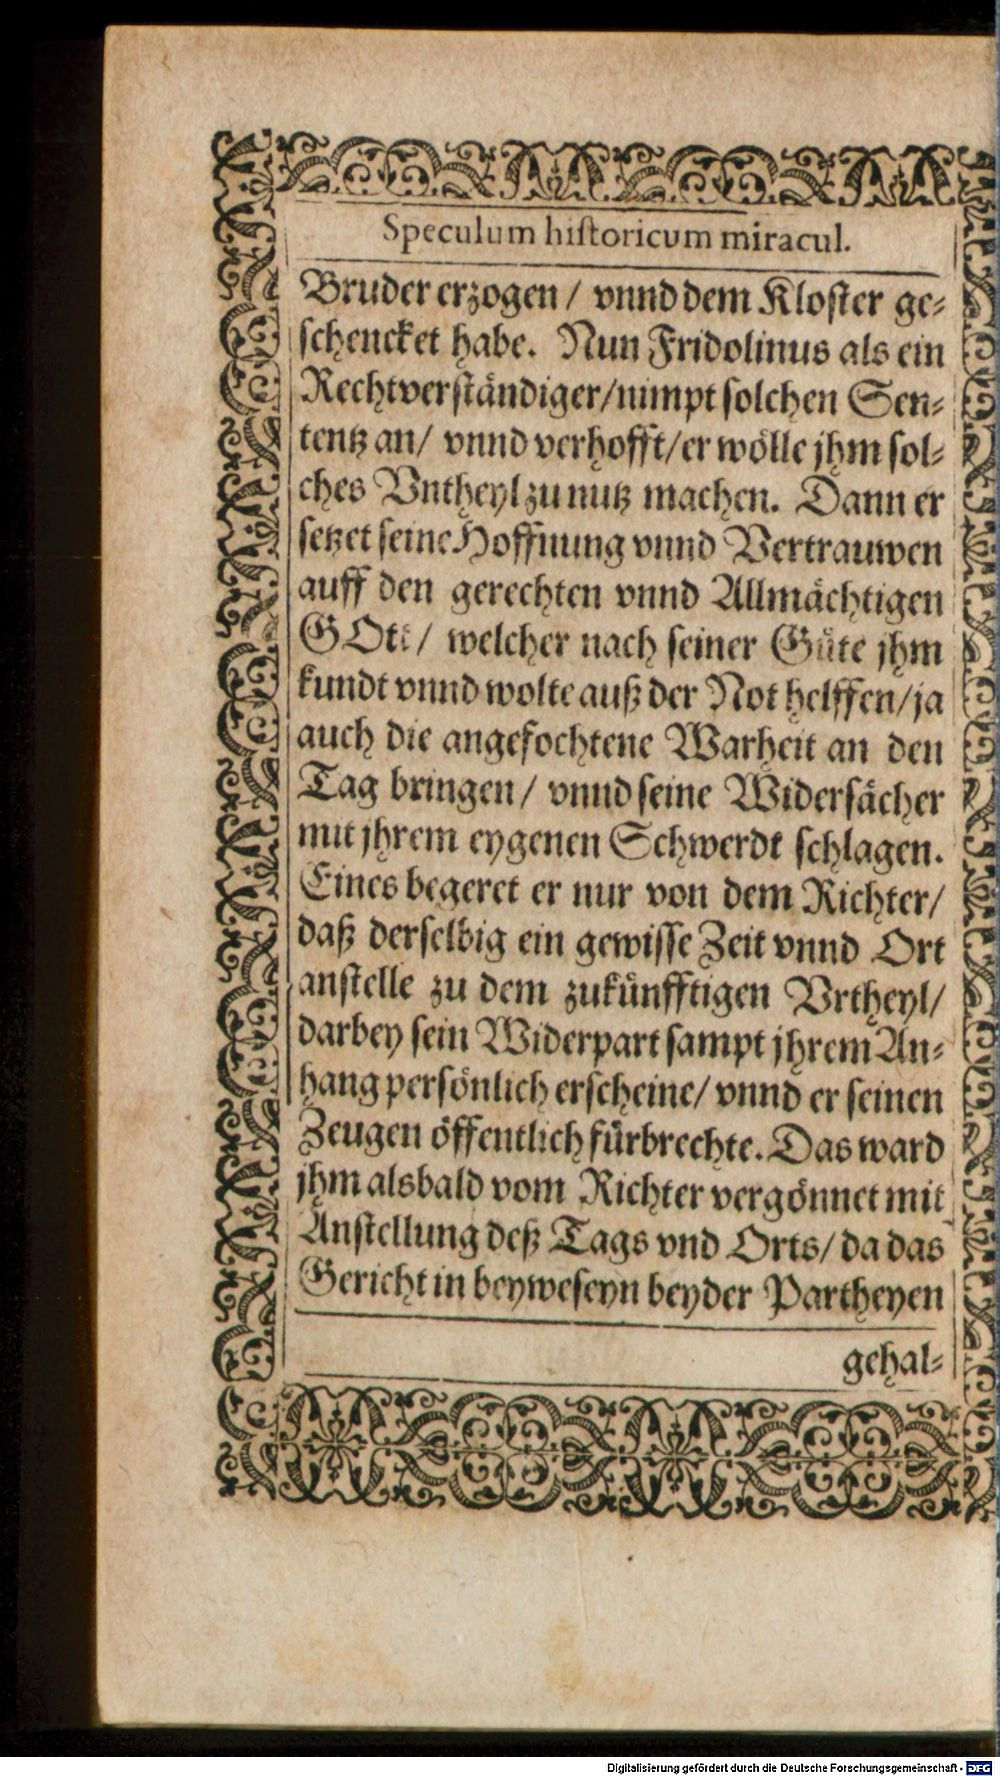 Speculum hiſtoricum miracul.
Bruder erzogen / vnnd dem Kloſter ge⸗
ſchencket habe. Nun Fridolinus als ein
Rechtverſtändiger/nimpt ſolchen Sen⸗
tentz an/ vnnd verhofft/er wölle jhm ſol⸗
ches Vntheyl zu nutz machen. Dann er
ſetzet ſeine Hoffnung vnnd Vertrauwen
auff den gerechten vnnd Allmächtigen
GOtt/ welcher nach ſeiner Güte jhm
kundt vnnd wolte auß der Not helffen/ja
auch die angefochtene Warheit an den
Tag bringen/ vnnd ſeine Widerſächer
mit jhrem eygenen Schwerdt ſchlagen.
Eines begeret er nur von dem Richter/
daß derſelbig ein gewiſſe Zeit vnnd Ort
anſtelle zu dem zukünfftigen Vrtheyl/
darbey ſein Widerpart ſampt jhrem An⸗
hang perſönlich erſcheine/ vnnd er ſeinen
Zeugen öffentlich fürbrechte. Das ward
jhm alsbald vom Richter vergönnet mit
Anſtellung deß Tags vnd Orts/ da das
Gericht in beyweſeyn beyder Partheyen
gehal⸗
Digitalisierung gefördert durch die Deutsche Forschungsgemeinschaft - DFG